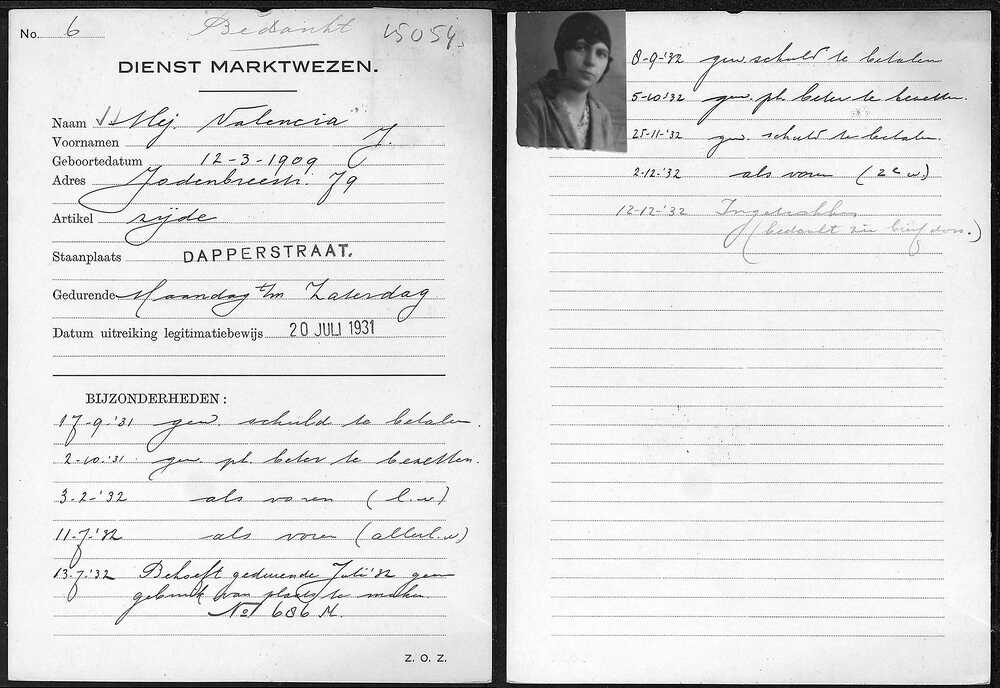 No. 6 Bedankt 15054.
DIENST MARKTWEZEN.
Naam Mej. Valencia
Voornamen J.
Geboortedatum 12-3-1909
Adres Jodenbreestr. 79
Artikel zijde
Staanplaats DAPPERSTRAAT.
Gedurende Maandag t/m Zaterdag
Datum uitreiking legitimatiebewijs 20 JULI 1931
BIJZONDERHEDEN:
17-9-'31 gew. schuld te betalen
2-10-'31 gew. pl. beter te bezetten.
3-2-'32 als voren (l.w)
11-7-'32 als voren (allerl.w)
13-7-'32 Behoeft gedurende Juli '32 geen
gebruik van plaats te maken
No 686 M.
Z. O. Z.
8-9-'32 gew schuld te betalen
5-10-'32 gew. pl. beter te bezetten.
25-11-'32 gew. schuld te betalen.
2-12-'32 als voren (2e w.)
12-12-'32 Ingetrokken
(bedankt zie brief doss.)